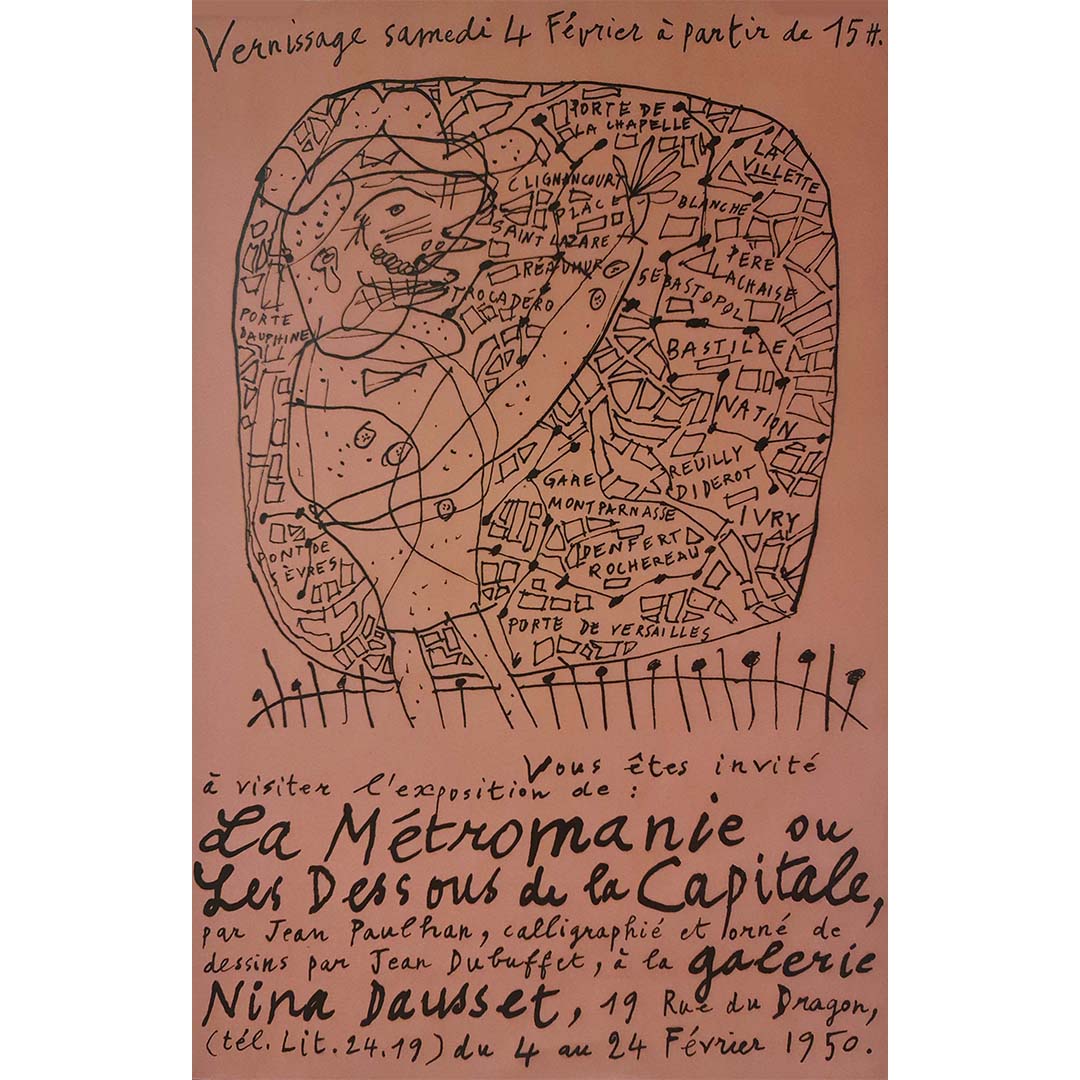 Vernissage samedi 4 Février à partir de 15 H.
PORTE DE
LA CHAPELLE
LA
VILLETTE
CLIGNANCOURT
PLACE
BLANCHE
SAINT LAZARE
RÉAUMUR
SÉBASTOPOL
PÈRE
LACHAISE
TROCADÉRO
PORTE
DAUPHINE
BASTILLE
NATION
REUILLY
DIDEROT
GARE
MONTPARNASSE
IVRY
DENFERT
ROCHEREAU
PONT DE
SÈVRES
PORTE DE VERSAILLES
Vous êtes invité
à visiter l'exposition de :
La Métromanie ou
Les Dessous de la Capitale,
par Jean Paulhan, calligraphié et orné de
dessins par Jean Dubuffet, à la galerie
Nina Dausset, 19 Rue du Dragon,
(tél. Lit. 24.19) du 4 au 24 Février 1950.